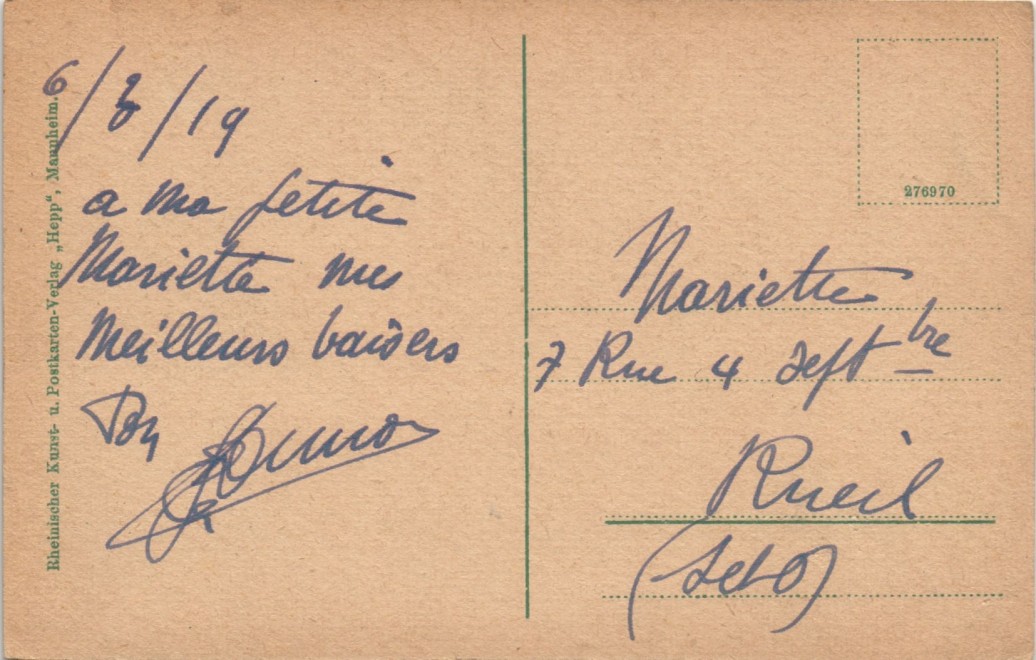 6/3/19
a ma petite
Mariette mes
Meilleurs baisers
Rheinischer Kunst- u. Postkarten-Verlag „Hepp“, Mannheim.
276970
Mariette
7 Rue 4 Septbre
Rueil
(S et O)